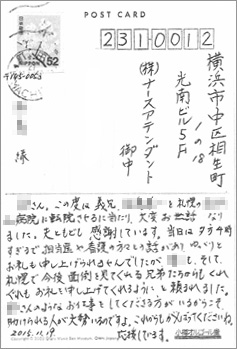 POST CARD
52
231-0012
横浜市中区相生町
1の18
光南ビル5F
(株)ナースアテンダント
御中
様
さん。この度は義兄、
と札幌の
病院に転院させるに当たり、大変お世話になり
ました。夫ともども感謝しています。当日は夕方4時
すぎるで、担当医や看護の方々との話があり、ゆっくりと
お礼も申し上げられませんでしたが
も、そして、
札幌で今後面倒を見てくれる兄弟たちからもくれ
ぐれもお礼を申し上げてくれるようにと頼まれました。
さんのようなお仕事をしてくださる方がいるからこそ
助けられる人が大勢いるのですよ。これからもがんばってくださいね。
2015.10.19
応援しています。